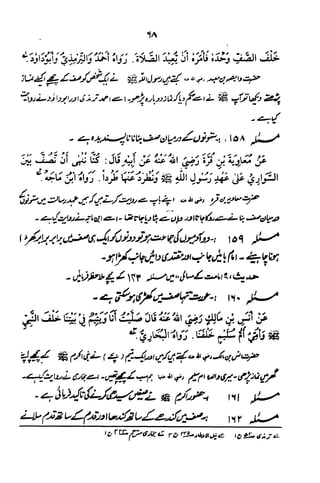 ۶۸
خَلْفَ الصَّفِّ وَحْدَهُ فَأَمَرَهُ أَنْ يُعِيدَ الصَّلَاةَ . رَوَاهُ أَحْمَدُ وَالتِّرْمِذِيُّ وَأَبُودَاوُدَ .
حضرت وابصہ بن معبد رضی اللہ عنہ کہتے ہیں رسول اللہ ﷺ نے ایک شخص کو صف کے پیچھے اکیلے نماز
پڑھتے دیکھا تو آپ ﷺ نے اسے حکم دیا کہ نماز دوبارہ پڑھو ۔ اسے احمد ترمذی اور ابوداود نے روایت
کیا ہے ۔
مسئلہ ۱۵۸ :- ستونوں کے درمیان صف بنانا ناپسندیدہ ہے ۔
عَنْ مُعَاوِيَةَ بْنِ قُرَّةَ رَضِيَ اللهُ عَنْهُ عَنْ أَبِيهِ قَالَ : كُنَّا نُنْهَى أَنْ نَصُفَّ بَيْنَ
السَّوَارِي عَلَى عَهْدِ رَسُولِ اللهِ ﷺ وَنُطْرَدُ عَنْهَا طَرْداً . رَوَاهُ ابْنُ مَاجَةَ
حضرت معاویہ بن قرہ رضی اللہ عنہ اپنے باپ سے روایت کرتے ہیں کہ ہمیں عہد رسالت میں ستونوں کے
درمیان صف بنانے سے روکا جاتا اور وہاں سے ہٹا دیا جاتا تھا ۔ اسے ابن ماجہ نے روایت کیا ہے ۔
مسئلہ ۱۵۹ :- دو آدمیوں کی جماعت ہو تو دونوں کو ایک ہی صف میں برابر برابر کھڑا
ہونا چاہیئے ۔ امام بائیں جانب اور مقتدی دائیں جانب کھڑا ہو ۔
حدیث ، امامت کے مسائل میں مسئلہ ۱۲۳ کے نیچے ملاحظہ فرمائیں ۔
مسئلہ ۱۶۰ :- عورت تنہا صف میں کھڑی ہو سکتی ہے ۔
عَنْ أَنَسِ بْنِ مَالِكٍ رَضِيَ اللهُ عَنْهُ قَالَ صَلَّيْتُ أَنَا وَيَتِيمٌ فِي بَيْتِنَا خَلْفَ النَّبِيِّ
ﷺ وَأُمِّي أُمُّ سُلَيْمٍ خَلْفَنَا . رَوَاهُ الْبُخَارِيُّ .
حضرت انس بن مالک رضی اللہ عنہ کہتے ہیں میں اور ایک یتیم ( بچے ) نے نبی اکرم ﷺ کے پیچھے اپنے
گھر میں نماز پڑھی ۔ میری والدہ ام سلیم رضی اللہ عنہا ہم سب کے پیچھے تھیں ۔ اسے بخاری نے روایت کیا ہے ۔
مسئلہ ۱۶۱ :- حضور اکرم ﷺ نے صفیں سیدھی کرنے کی تاکید فرمائی ہے ۔
مسئلہ ۱۶۲ :- صف میں کندھے کے ساتھ کندھا اور قدم کے ساتھ قدم ملانے